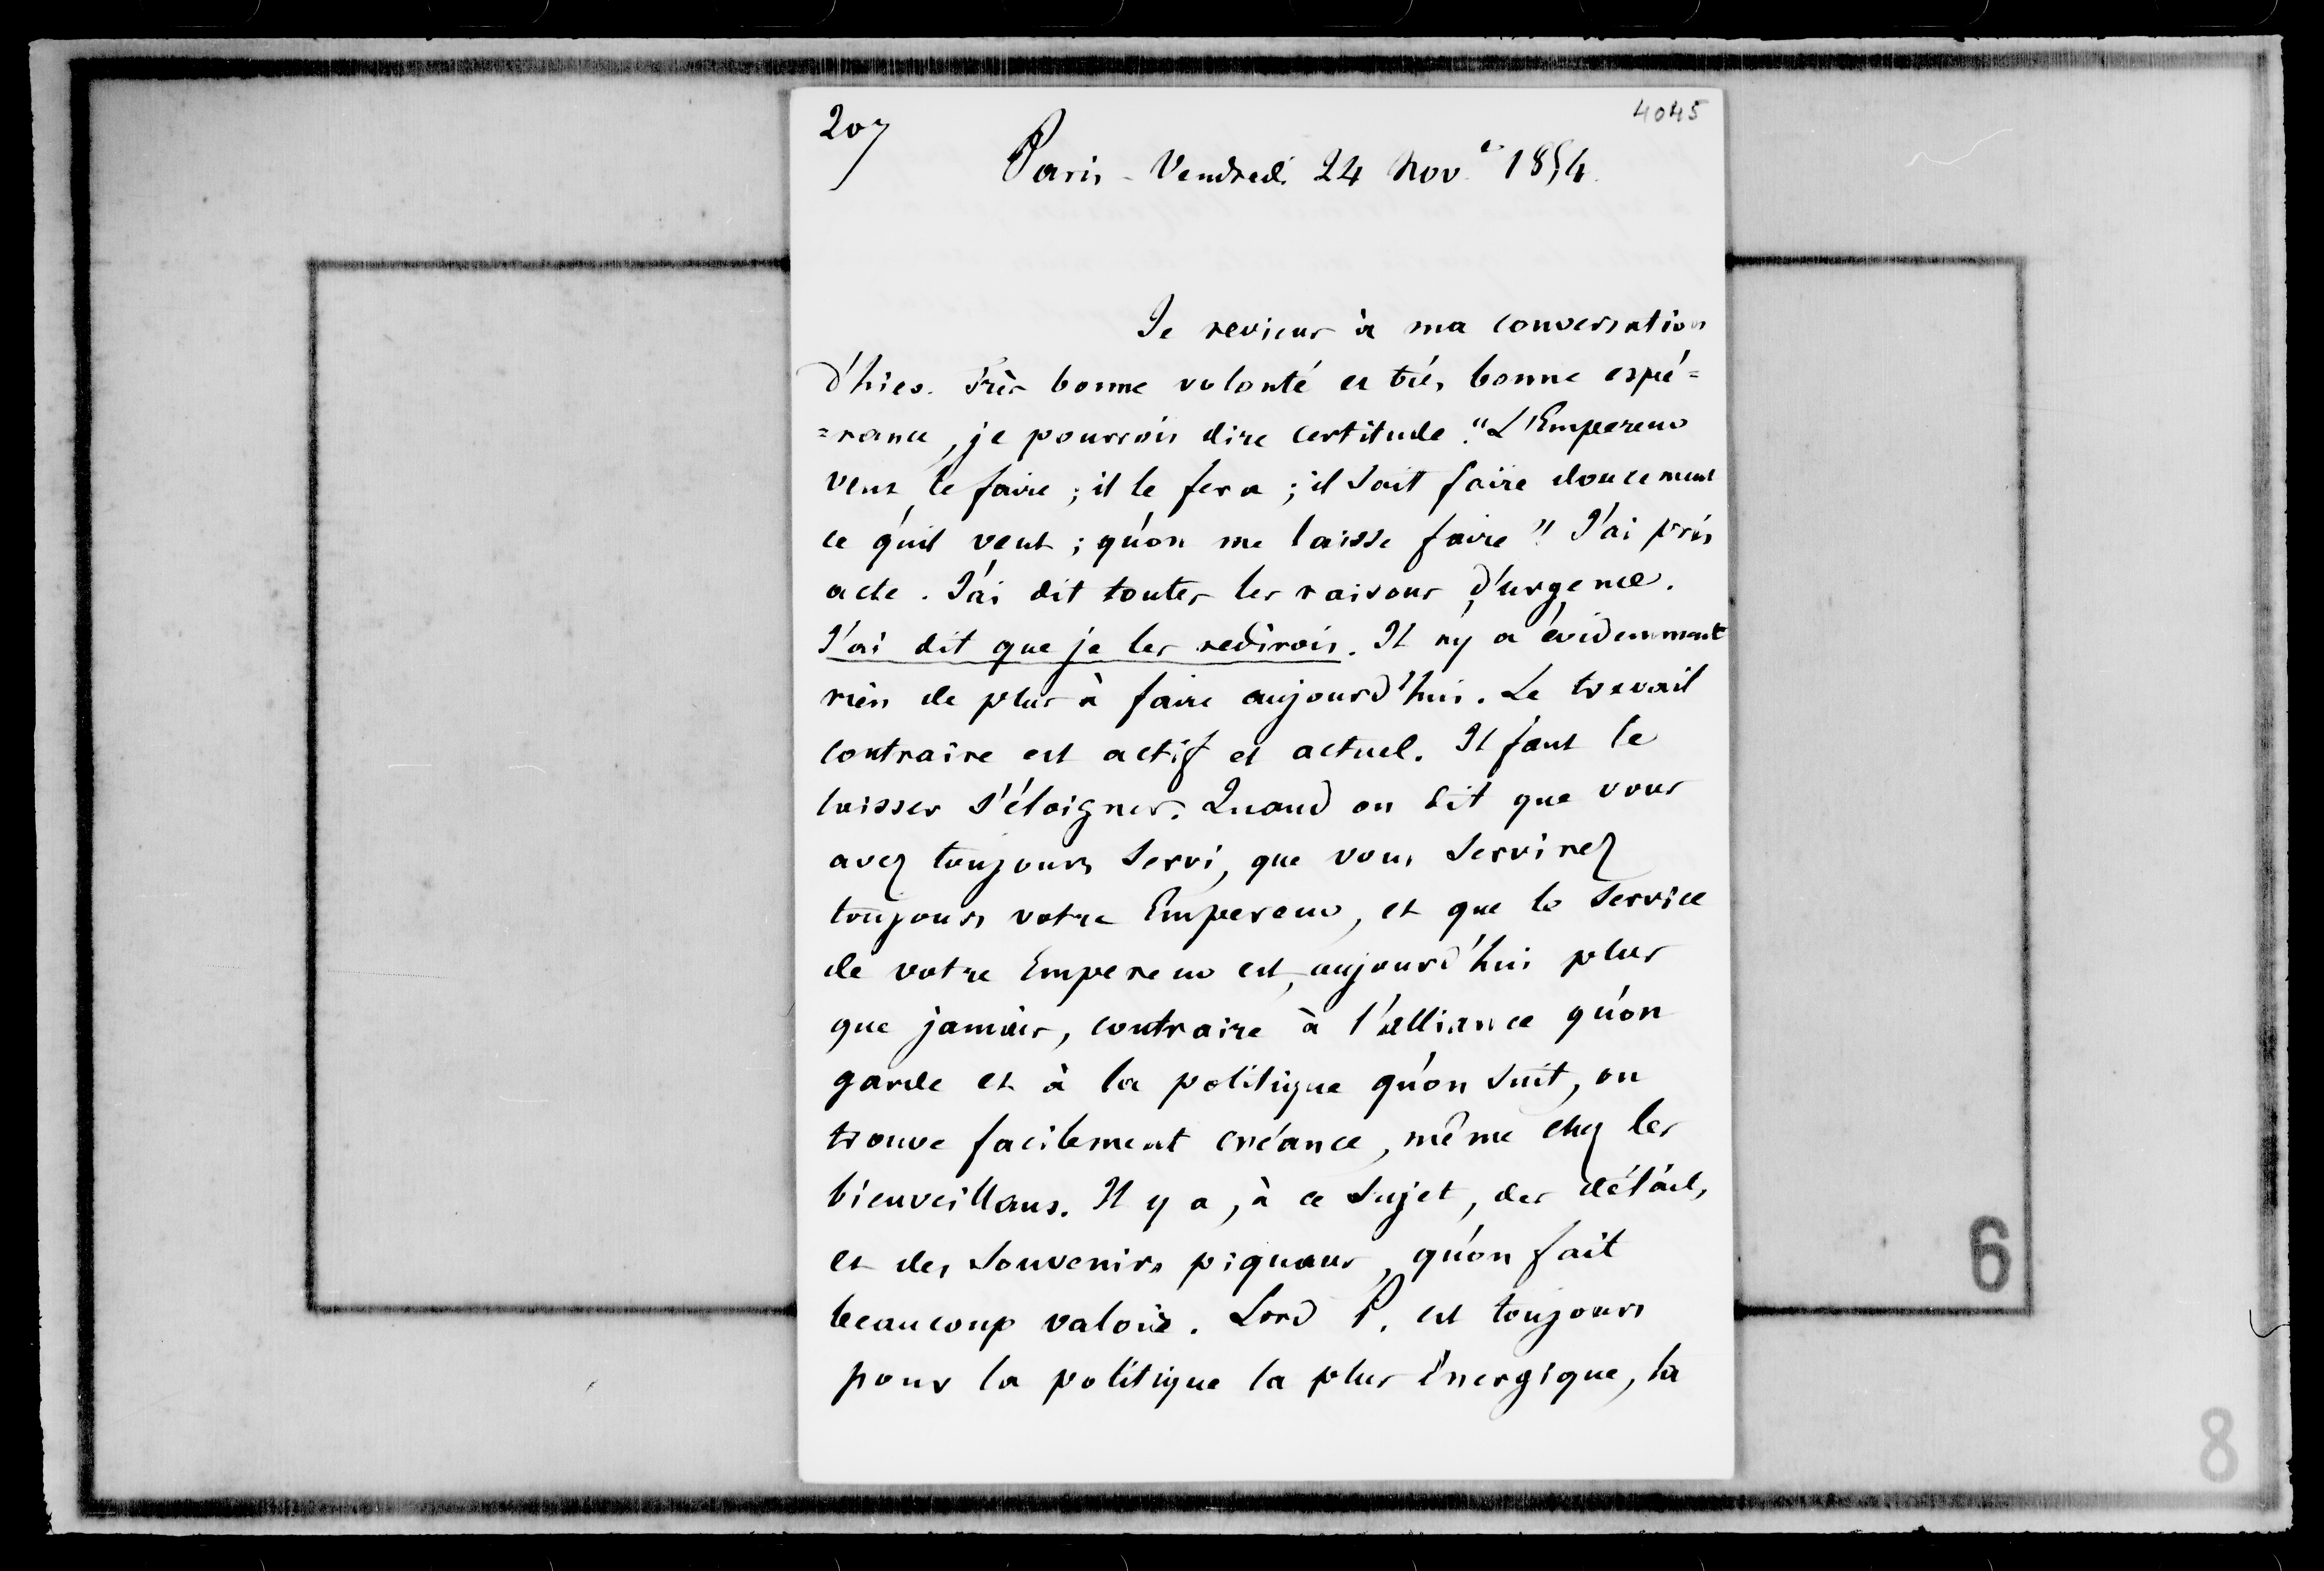 207
4045
Paris - Vendredi 24 Nov.e 1854.
Je reviens à ma conversation
d'hier. Très bonne volonté et très bonne espé=
=rance, je pourrois dire certitude. "L'Empereur
veut le faire ; il le fera ; il sait faire doucement
ce qu'il veut ; qu'on me laisse faire". J'ai pris
acte. J'ai dit toutes les raisons d'urgence.
J'ai dit que je les redirois. Il n'y a évidemment
rien de plus à faire aujourd'hui. Le travail
contraire est actif et actuel. Il faut le
laisser s'éloigner. Quand on dit que vous
avez toujours servi, que vous servirez
toujours votre Empereur, et que le service
de votre Empereur est, aujourd'hui plus
que jamais, contraire à l'alliance qu'on
garde et à la politique qu'on suit, on
trouve facilement créance, même chez les
bienveillans. Il y a, à ce sujet, des détails
et des souvenirs piquans, qu'on fait
beaucoup valoir. Lord P. est toujours
pour la politique la plus énergique, la
6
8